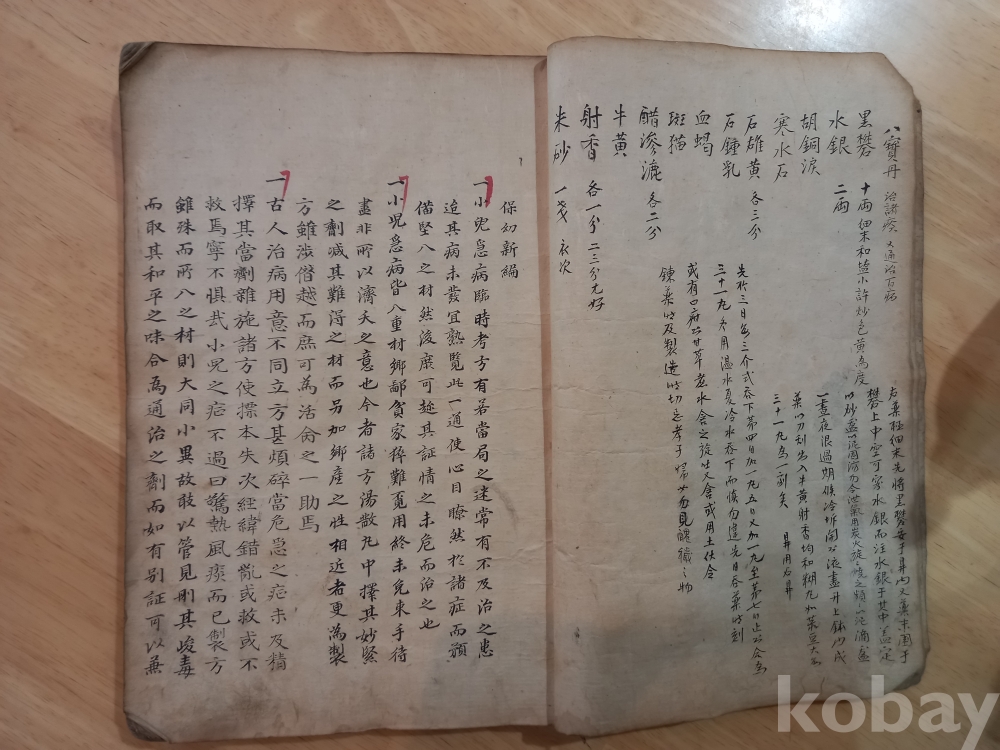 八寶丹 治諸瘡 大通治百病
黑礬 十兩 細末和塩小許炒色黃為度
水銀 二兩
胡銅淚
寒水石
石雄黃 各三分
石鍾乳
血蝎
斑猫
醋滲漉 各二分
牛黃
射香 各一分 二三分尤好
朱砂 一戔 衣次
右藥極細末先將黑礬安于鼎內又藥末圍于
礬上中空可容水銀而注水銀于其中盖定
一晝夜限過期候冷坼開
藥以刀刮出入牛黃射香均和糊丸如菉豆大
三十一丸為一劑矣 鼎用石鼎
先於三日每三介式吞下第四日加一丸五日又加一丸至第七日止以合為
三十一丸冬用溫水夏冷水吞下而慎勿違先日吞藥時刻
或有口病則甘草煮水含之旋吐又含或用土伏令
鍊藥時及製造時切忌孝子婦女勿見醜穢之物
保幼新編
一小兒急病臨時考方有若當局之迷常有不及治之患
迨其病未發宜熟覽此一通使心目瞭然於諸症而預
備堅八之材然後庶可趂其証情之未危而治之也
一小兒急病皆八重材鄉鄙貧家猝難覓用終未免束手待
盡非所以濟夭之意也今者諸方湯散丸中擇其妙緊
之劑减其難得之材而另加鄉產之性相近者更為製
方雖涉僭越而庶可為活命之一助焉
一古人治病用意不同立方甚煩碎當危急之症未及精
擇其當劑雜施諸方使摽本失次經緯錯亂或救或不
救焉寧不惧㢤小兒之症不過曰驚熱風痰而已製方
雖殊而所八之材則大同小異故敢以管見刪其峻毒
而取其和平之味合為通治之劑而如有別証可以兼
kobay